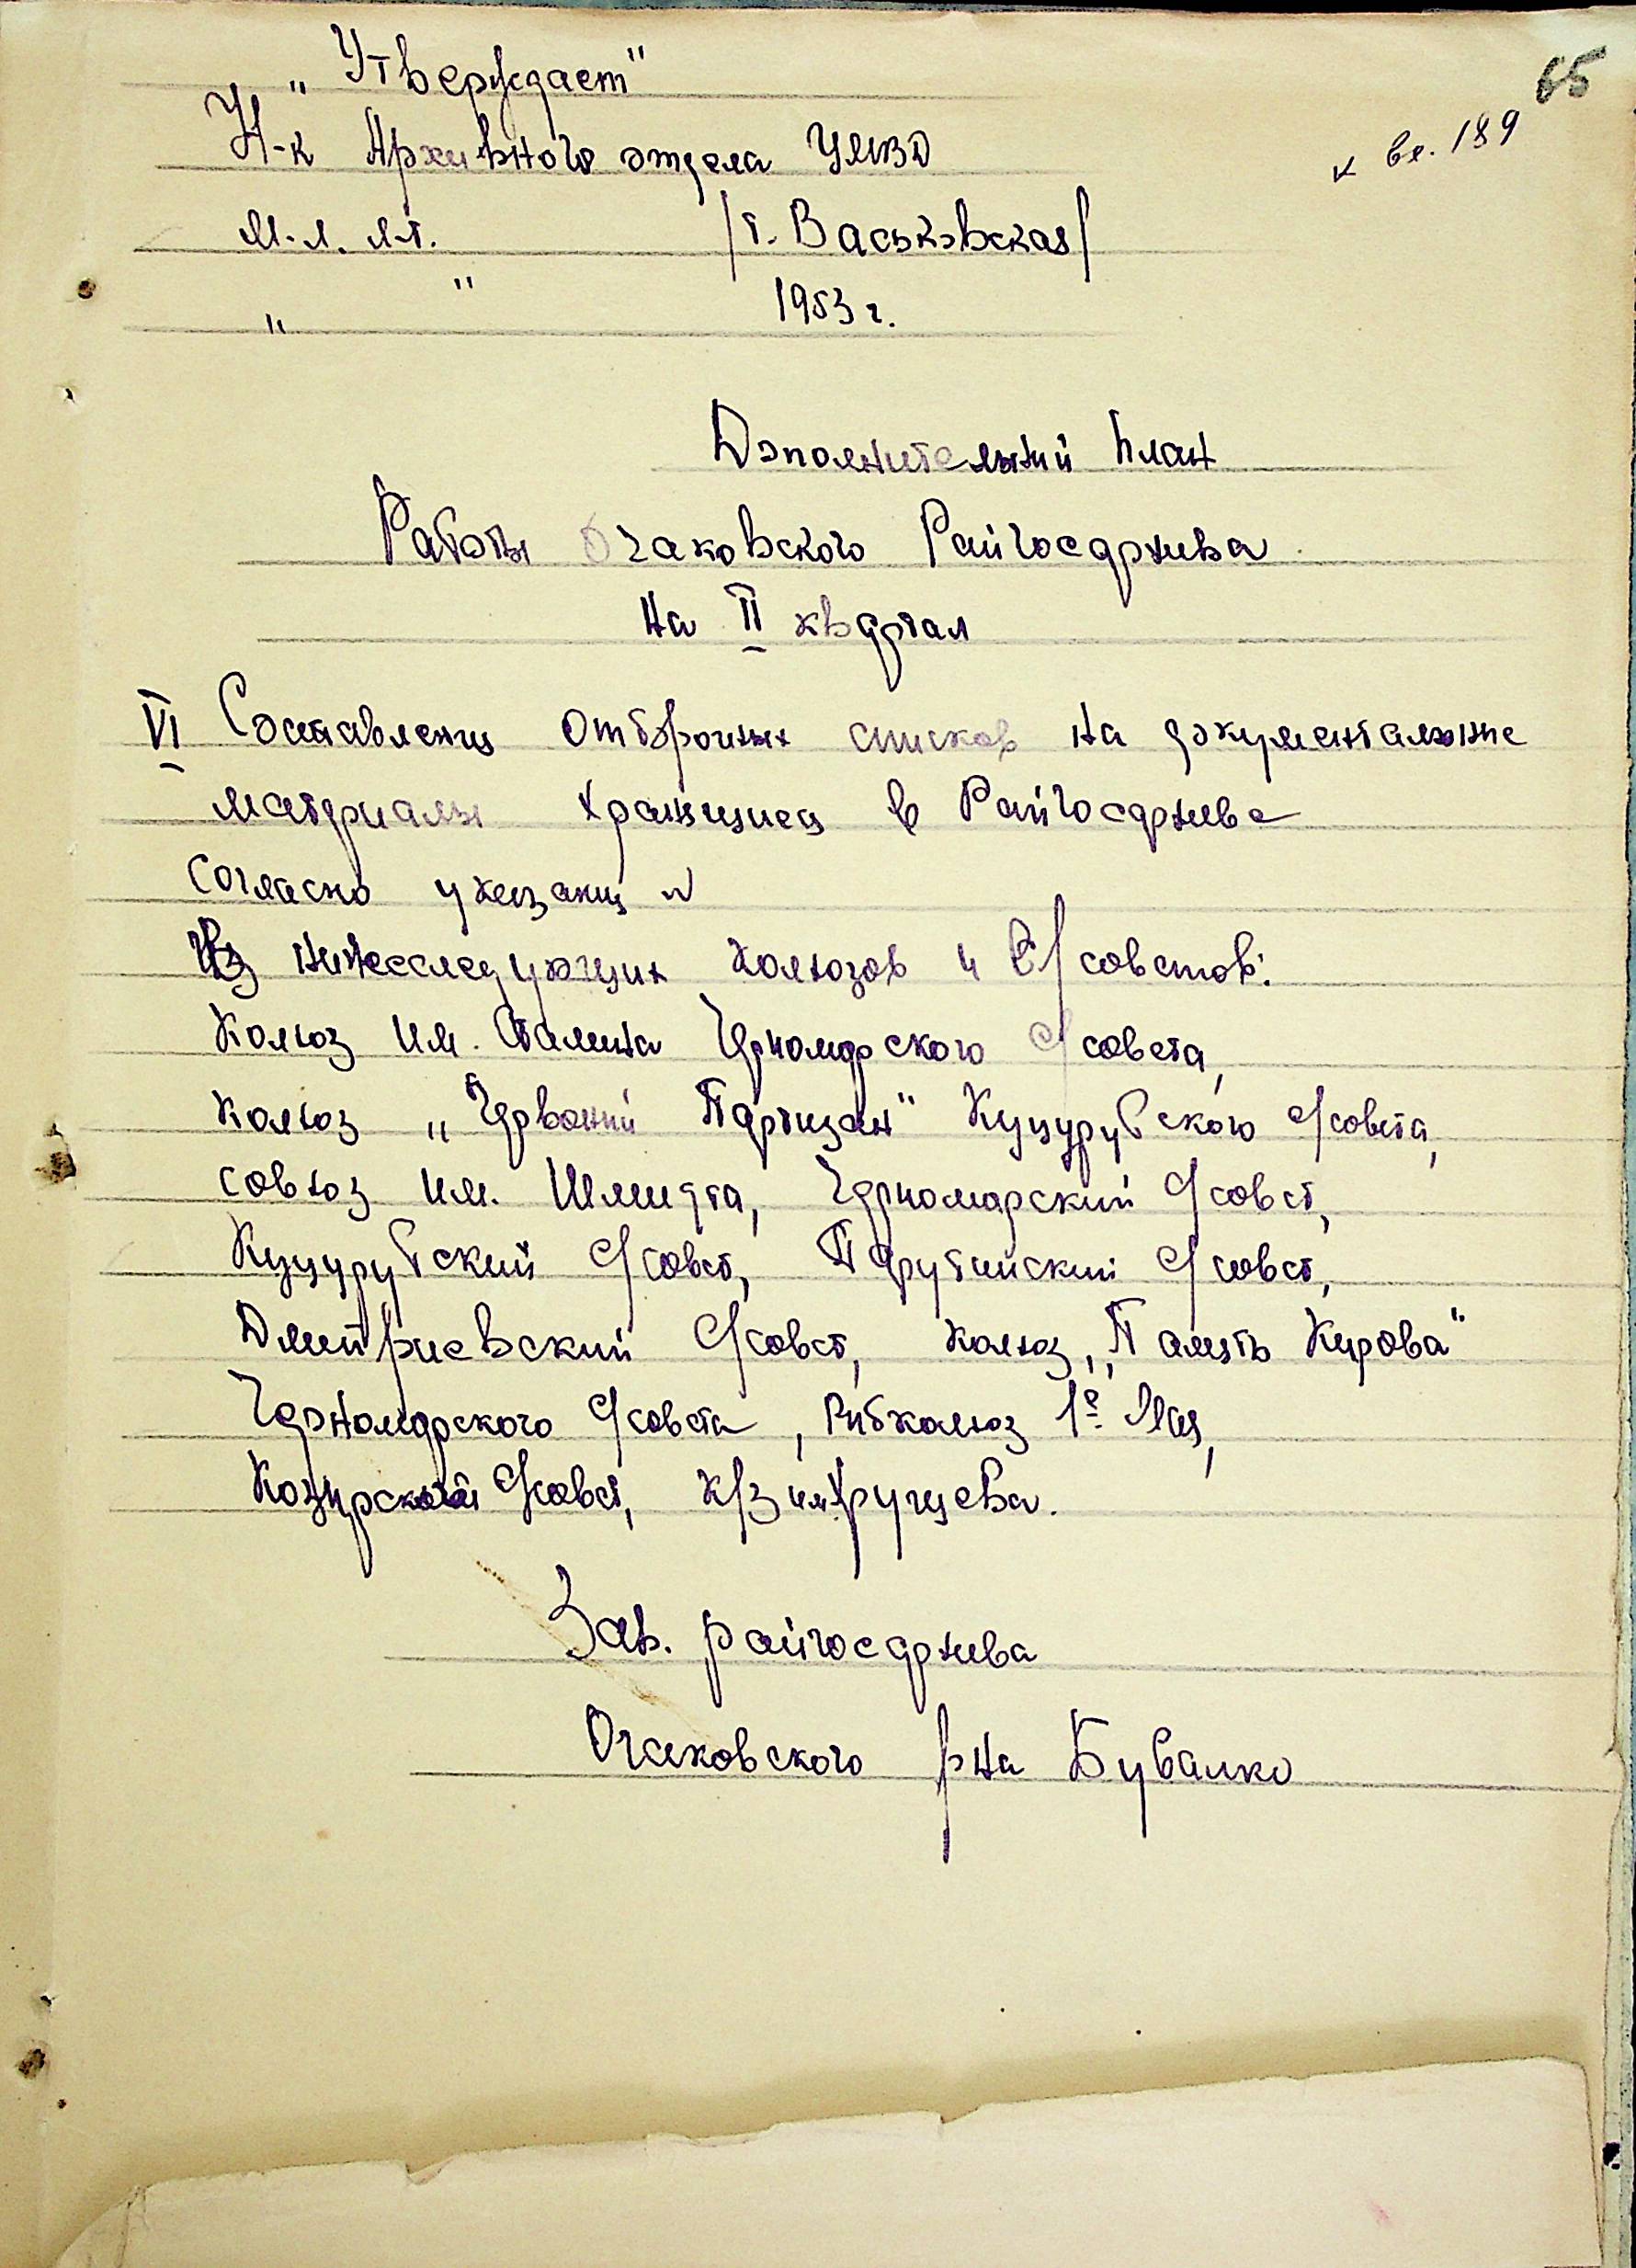 65
к вх. 189
„Утверждает"
Н-к Архивного отдела УМВД
м-л. л-т. /т. Васьковская/
„ " 1953 г.
Дополнительний план
Работы Очаковского Райгосархива
на II квартал
VI Составления отборочных списков на документальние
материалы хранящиеся в Райгосархиве
согласно указания
Из нижеследующих колхозов и С/советов:
Колхоз им. Сталина Черноморского С/совета,
колхоз „Червоний Партизан" Куцурубского С/совета,
совхоз им. Шмидта, Черноморский С/совет,
Куцурубский С/совет, Парутинский С/совет,
Дмитриевский С/совет, колхоз „Память Кирова"
Черноморского С/совета, Рибколхоз 1е Мая,
Козирский С/совет, к/з им Хрущева.
Зав. райгосархива
Очаковского р-на Бувалко